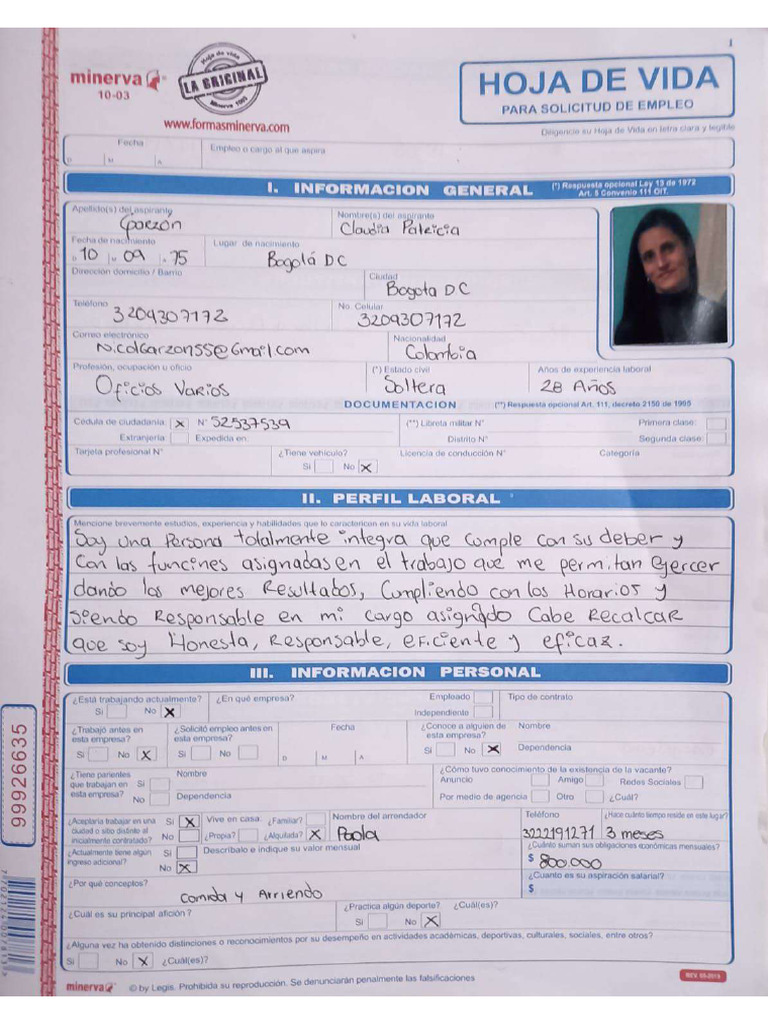 1
minerva
10-03
Hoja de vida
LA ORIGINAL
Minerva 1003
www.formasminerva.com
HOJA DE VIDA
PARA SOLICITUD DE EMPLEO
Diligencie su Hoja de Vida en letra clara y legible
Fecha
D M A
Empleo o cargo al que aspira
I. INFORMACION GENERAL
(*) Respuesta opcional Ley 13 de 1972
Art. 5 Convenio 111 OIT.
Apellido(s) del aspirante
Garzon
Nombre(s) del aspirante
Claudia Patricia
Fecha de nacimiento
D 10 M 09 A 75
Lugar de nacimiento
Bogotá DC
Dirección domicilio / Barrio
Ciudad
Bogota DC
Teléfono
3209307172
No. Celular
3209307172
Correo electrónico
NicolGarzon55@Gmail.com
Nacionalidad
Colombia
Profesión, ocupación u oficio
Oficios Varios
(*) Estado civil
Soltera
Años de experiencia laboral
28 Años
DOCUMENTACION
(**) Respuesta opcional Art. 111, decreto 2150 de 1995
Cédula de ciudadanía: x N° 52537539
(**) Libreta militar N°
Primera clase:
Extranjería Expedida en:
Distrito N°
Segunda clase:
Tarjeta profesional N°
¿Tiene vehículo?
Si No x
Licencia de conducción N°
Categoría
II. PERFIL LABORAL
Mencione brevemente estudios, experiencia y habilidades que lo caractericen en su vida laboral
Soy una Persona totalmente integra que cumple con su deber y
con las funcines asignadas en el trabajo que me permitan Ejercer
dando los mejores Resultados, Cumpliendo con los Horarios y
siendo Responsable en mi cargo asignado Cabe RECALCAR
que soy Honesta, Responsable, eficiente y eficaz.
III. INFORMACION PERSONAL
¿Está trabajando actualmente?
Si No x
¿En qué empresa?
Empleado
Independiente
Tipo de contrato
¿Trabajó antes en
esta empresa?
Si No x
¿Solicitó empleo antes en
esta empresa?
Si No
Fecha
D M A
¿Conoce a alguien de
esta empresa?
Si No x
Nombre
Dependencia
¿Tiene parientes
que trabajan en
esta empresa?
Si
No
Nombre
Dependencia
¿Cómo tuvo conocimiento de la existencia de la vacante?
Anuncio Amigo Redes Sociales
Por medio de agencia Otro ¿Cuál?
¿Aceptaría trabajar en una
ciudad o sitio distinto al
inicialmente contratado?
Si x
No
Vive en casa: ¿Familiar?
¿Propia? ¿Alquilada? x
Nombre del arrendador
Paola
Teléfono
3222191271
¿Hace cuánto tiempo reside en este lugar?
3 meses
¿Actualmente tiene algún
ingreso adicional?
Si
No x
Descríbalo e indique su valor mensual
¿Cuánto suman sus obligaciones económicas mensuales?
$ 800.000
¿Por qué conceptos?
Comida y Arriendo
¿Cuanto es su aspiración salarial?
$
¿Cuál es su principal afición?
¿Practica algún deporte?
Si No x
¿Cuál(es)?
¿Alguna vez ha obtenido distinciones o reconocimientos por su desempeño en actividades académicas, deportivas, culturales, sociales, entre otros?
Si No x ¿Cuál(es)?
minerva © by Legis. Prohibida su reproducción. Se denunciarán penalmente las falsificaciones
99926635